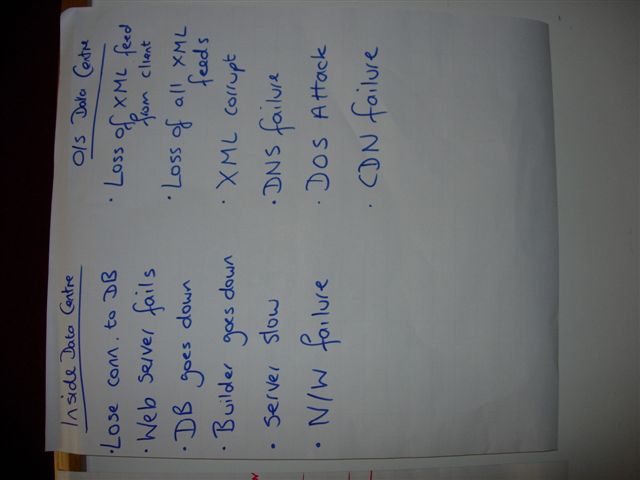 Inside Data Centre
· Lose conn. to DB
· Web server fails
· DB goes down
· Builder goes down
· Server slow
· N/W failure
O/S Data Centre
· Loss of XML feed
from client
· Loss of all XML
feeds
· XML corrupt
· DNS failure
· DOS Attack
· CDN failure